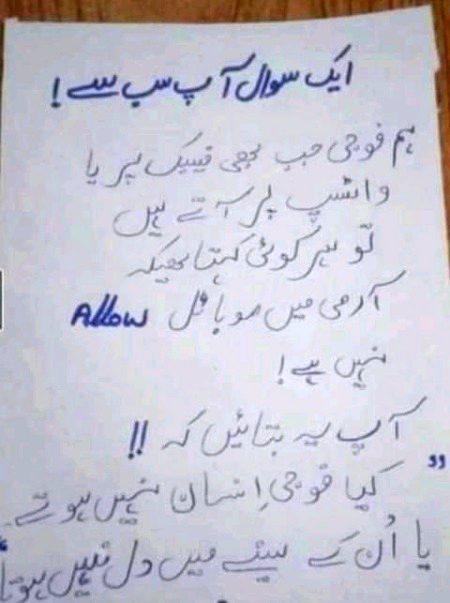 ایک سوال آپ سب سے !
ہم فوجی جب بھی فیبک پر یا
واٹسپ پر آتے ہیں
تو ہر کوئی کہتا ھیکہ
آرمی میں موبائل Allow
نہیں ہے !
آپ یہ بتائیں کہ !!
"کیا فوجی اِنسان نہیں ہوتے
یا اُن کے سینے میں دل نہیں ہوتا"